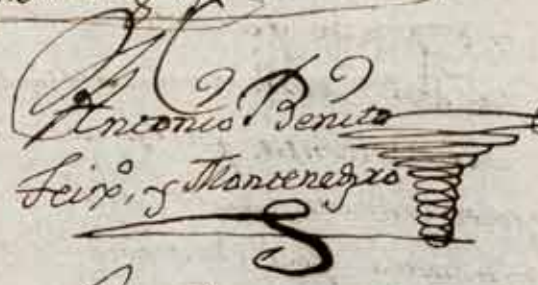 Antonio Benito
Feixº, y Montenegro